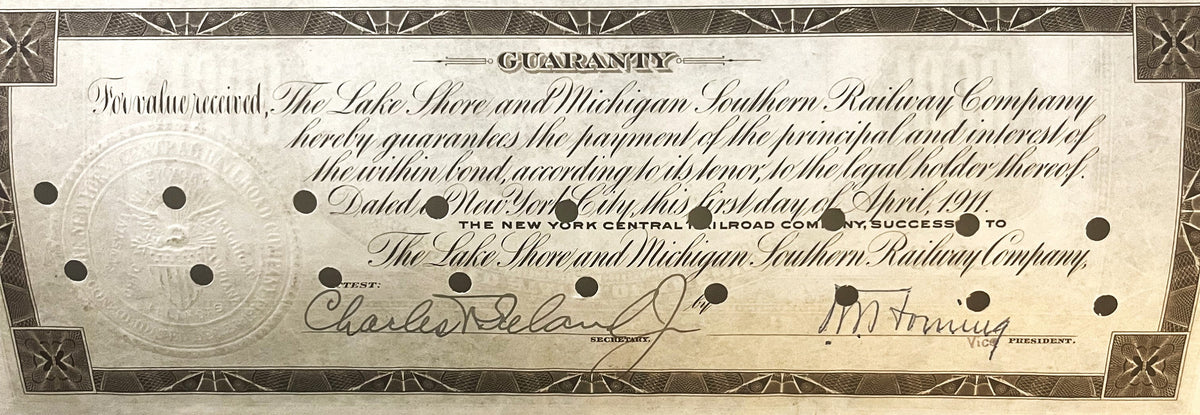 GUARANTY
For value received, The Lake Shore and Michigan Southern Railway Company
hereby guarantees the payment of the principal and interest of
the within bond, according to its tenor, to the legal holder thereof.
Dated at New York City, this first day of April, 1911.
THE NEW YORK CENTRAL RAILROAD COMPANY, SUCCESSOR TO
The Lake Shore and Michigan Southern Railway Company,
ATTEST:
by
Charles Jr
SECRETARY.
Vice PRESIDENT.